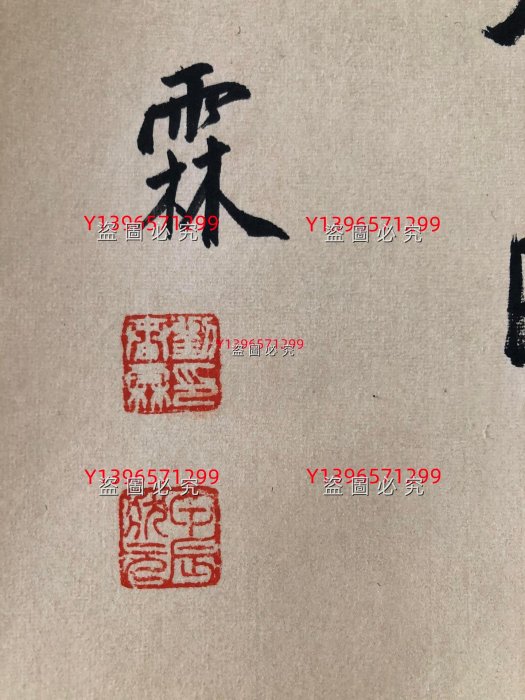 霖
Y1396571299
盜圖必究
Y1396571299
盜圖必究
劉印春霖
Y1396571299
盜圖必究
Y1396571299
盜圖必究
Y1396571299
盜圖必究
甲辰狀元